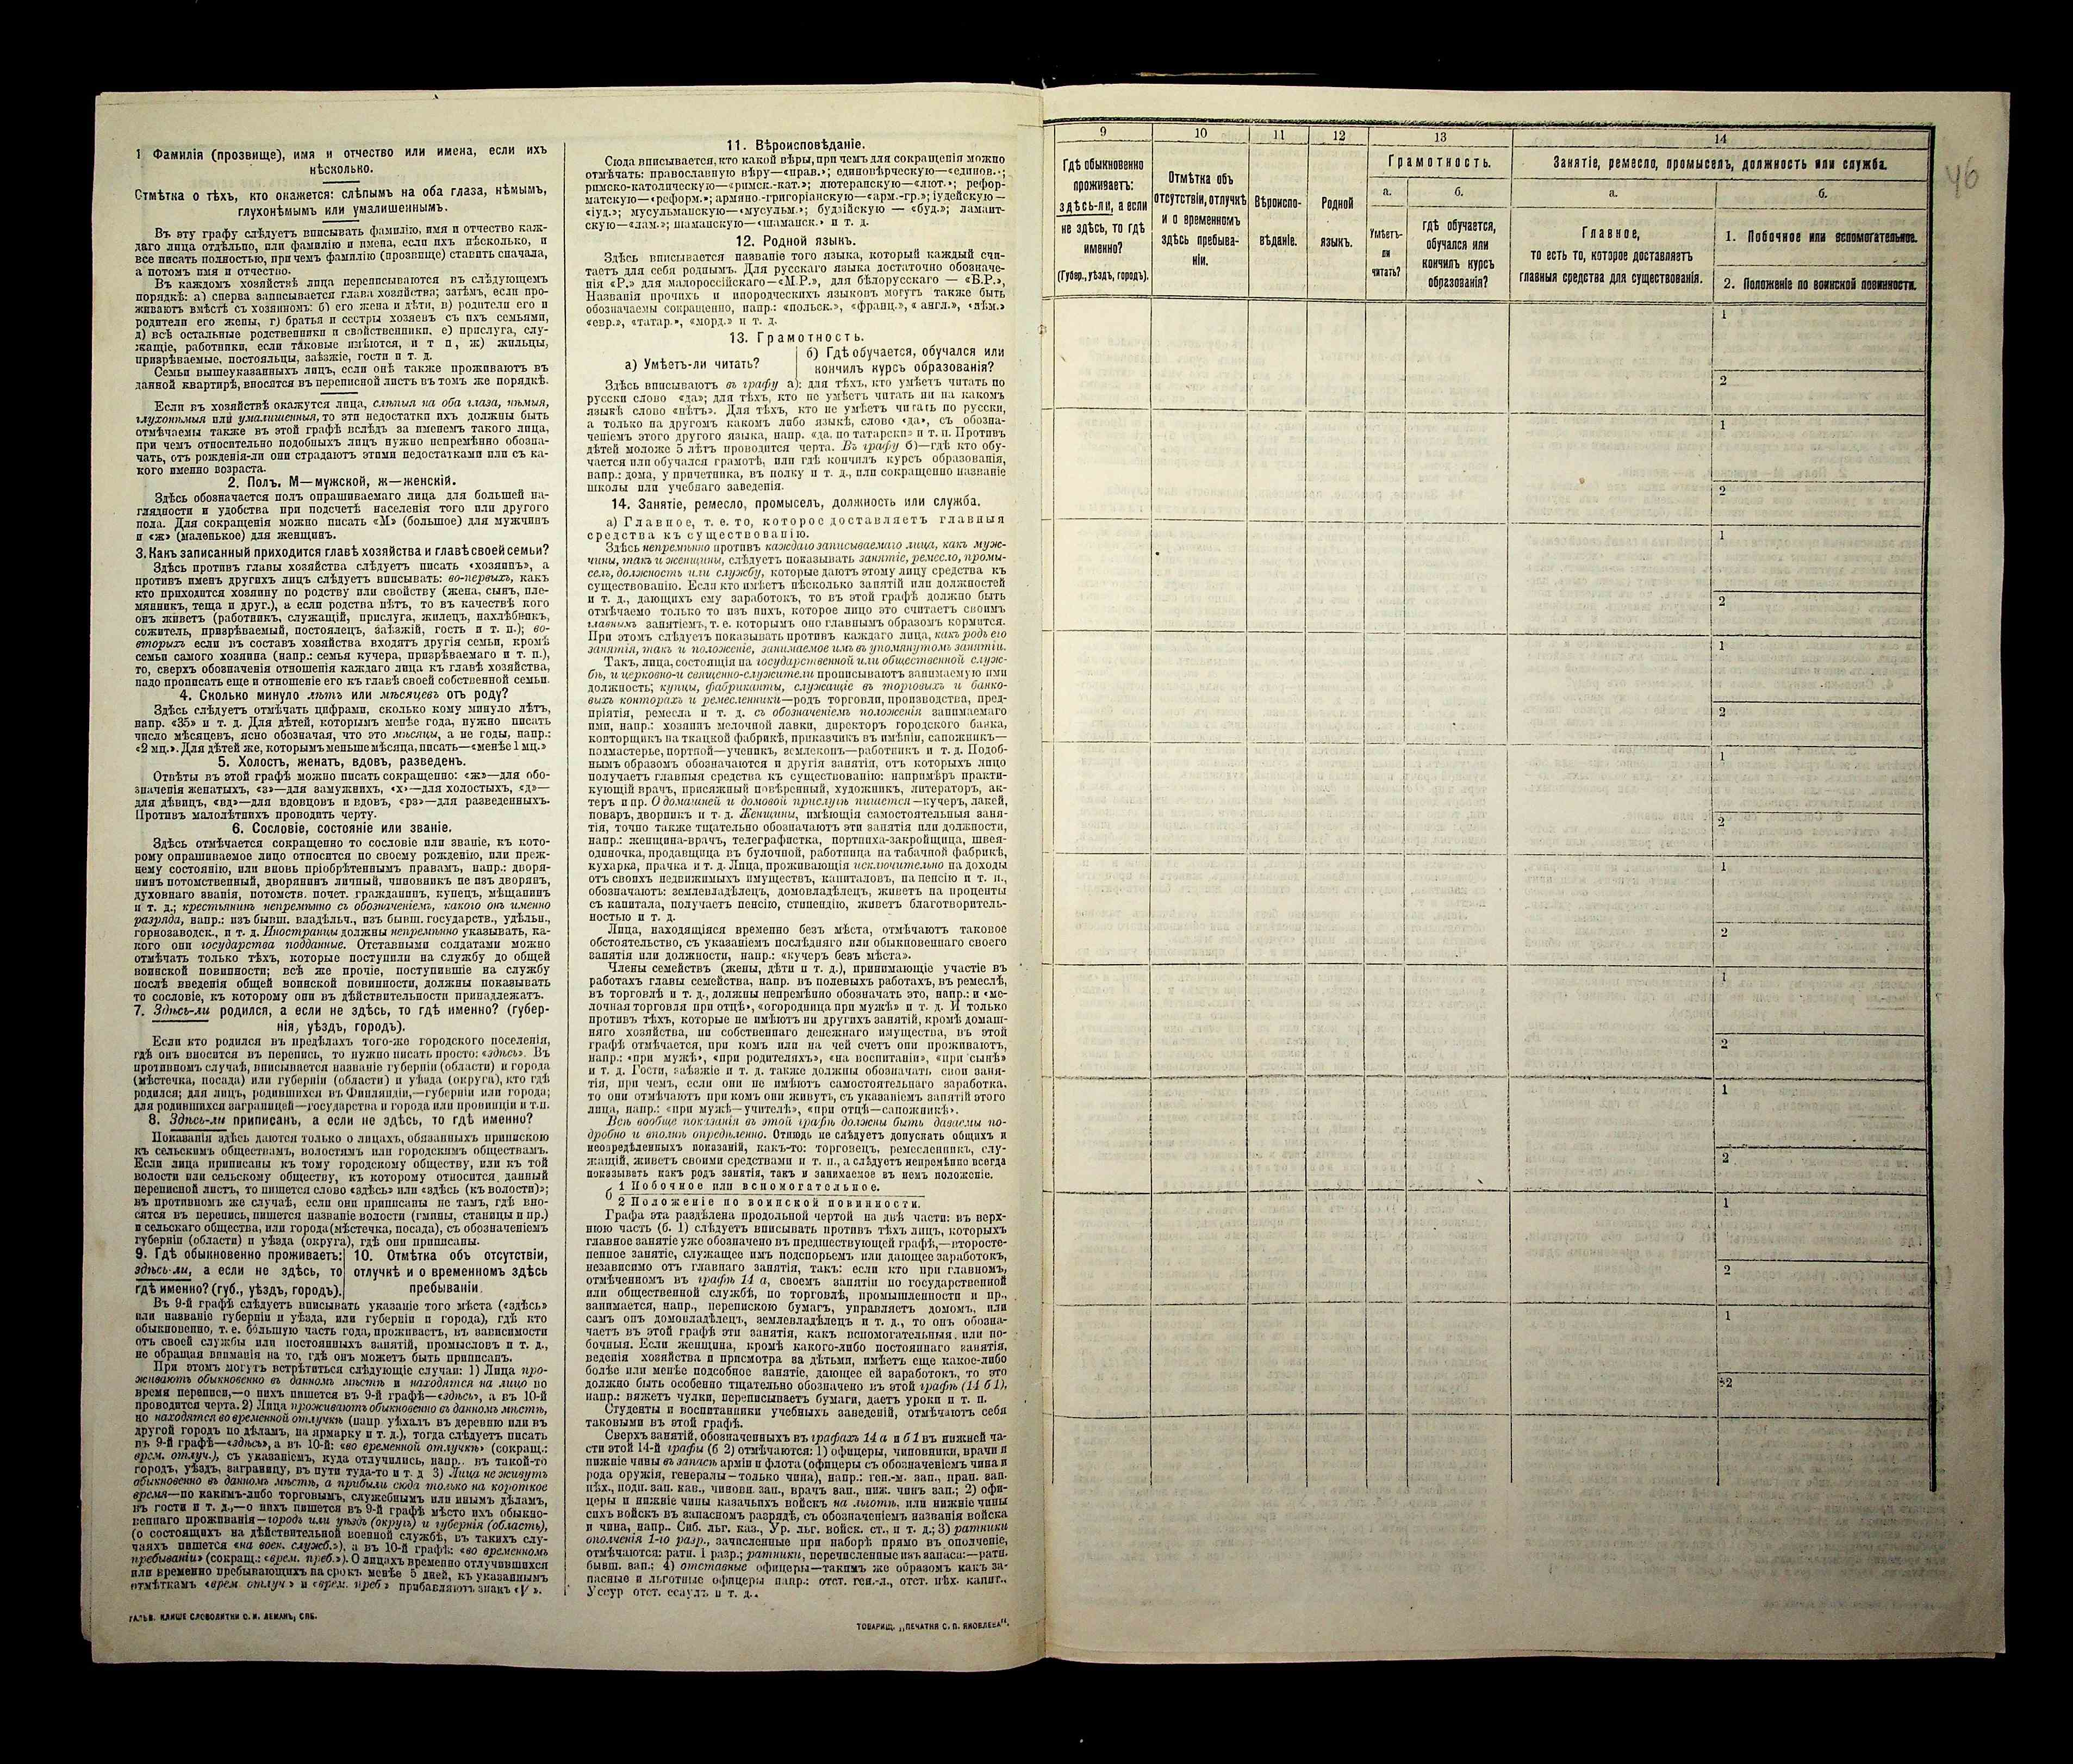 1 Фамилія (прозвище), имя и отчество или имена, если ихъ
нѣсколько.
Отмѣтка о тѣхъ, кто окажется: слѣпымъ на оба глаза, нѣмымъ,
глухонѣмымъ или умалишеннымъ.
Въ эту графу слѣдуетъ вписывать фамилію, имя и отчество каж-
даго лица отдѣльно, или фамилію и имена, если ихъ нѣсколько, и
все писать полностью, при чемъ фамилію (прозвище) ставить сначала,
а потомъ имя и отчество.
Въ каждомъ хозяйствѣ лица переписываются въ слѣдующемъ
порядкѣ: а) сперва записывается глава хозяйства; затѣмъ, если про-
живаютъ вмѣстѣ съ хозяиномъ: б) его жена и дѣти, в) родители его и
родители его жены, г) братья и сестры хозяевъ съ ихъ семьями,
д) всѣ остальные родственники и свойственники, е) прислуга, слу-
жащіе, работники, если таковые имѣются, и т п, ж) жильцы,
призрѣваемые, постояльцы, заѣзжіе, гости и т. д.
Семьи вышеуказанныхъ лицъ, если онѣ также проживаютъ въ
данной квартирѣ, вносятся въ переписной листъ въ томъ же порядкѣ.
Если въ хозяйствѣ окажутся лица, слѣпыя на оба глаза, нѣмыя,
глухонѣмыя или умалишенныя, то эти недостатки ихъ должны быть
отмѣчаемы также въ этой графѣ вслѣдъ за именемъ такого лица,
при чемъ относительно подобныхъ лицъ нужно непремѣнно обозна-
чать, отъ рожденія-ли они страдаютъ этими недостатками или съ ка-
кого именно возраста.
2. Полъ. М—мужской, ж—женскій.
Здѣсь обозначается полъ опрашиваемаго лица для большей на-
глядности и удобства при подсчетѣ населенія того или другого
пола. Для сокращенія можно писать «М» (большое) для мужчинъ
и «ж» (маленькое) для женщинъ.
3. Какъ записанный приходится главѣ хозяйства и главѣ своей семьи?
Здѣсь противъ главы хозяйства слѣдуетъ писать «хозяинъ», а
противъ именъ другихъ лицъ слѣдуетъ вписывать: во-первыхъ, какъ
кто приходится хозяину по родству или свойству (жена, сынъ, пле-
мянникъ, теща и друг.), а если родства нѣтъ, то въ качествѣ кого
онъ живетъ (работникъ, служащій, прислуга, жилецъ, нахлѣбникъ,
сожитель, призрѣваемый, постоялецъ, заѣзжій, гость и т. п.); во-
вторыхъ если въ составъ хозяйства входятъ другія семьи, кромѣ
семьи самого хозяина (напр.: семья кучера, призрѣваемаго и т. п.),
то, сверхъ обозначенія отношенія каждаго лица къ главѣ хозяйства,
надо прописать еще и отношеніе его къ главѣ своей собственной семьи.
4. Сколько минуло лѣтъ или мѣсяцевъ отъ роду?
Здѣсь слѣдуетъ отмѣчать цифрами, сколько кому минуло лѣтъ,
напр. «35» и т. д. Для дѣтей, которымъ менѣе года, нужно писать
число мѣсяцевъ, ясно обозначая, что это мѣсяцы, а не годы, напр.:
«2 мц.». Для дѣтей же, которымъ меньше мѣсяца, писать—«менѣе 1 мц.»
5. Холостъ, женатъ, вдовъ, разведенъ.
Отвѣты въ этой графѣ можно писать сокращенно: «ж»—для обо-
значенія женатыхъ, «з»—для замужнихъ, «х»—для холостыхъ, «д»—
для дѣвицъ, «вд»—для вдовцовъ и вдовъ, «рз»—для разведенныхъ.
Противъ малолѣтнихъ проводить черту.
6. Сословіе, состояніе или званіе.
Здѣсь отмѣчается сокращенно то сословіе или званіе, къ кото-
рому опрашиваемое лицо относится по своему рожденію, или преж-
нему состоянію, или вновь пріобрѣтеннымъ правамъ, напр.: дворя-
нинъ потомственный, дворянинъ личный, чиновникъ не изъ дворянъ,
духовнаго званія, потомств. почет. гражданинъ, купецъ, мѣщанинъ
и т. д.; крестьянинъ непремѣнно съ обозначеніемъ, какого онъ именно
разряда, напр.: изъ бывш. владѣльч., изъ бывш. государств., удѣльн.,
горнозаводск., и т. д. Иностранцы должны непремѣнно указывать, ка-
кого они государства подданные. Отставными солдатами можно
отмѣчать только тѣхъ, которые поступили на службу до общей
воинской повинности; всѣ же прочіе, поступившіе на службу
послѣ введенія общей воинской повинности, должны показывать
то сословіе, къ которому они въ дѣйствительности принадлежатъ.
7. Здѣсь-ли родился, а если не здѣсь, то гдѣ именно? (губер-
нія, уѣздъ, городъ).
Если кто родился въ предѣлахъ того-же городского поселенія,
гдѣ онъ вносится въ перепись, то нужно писать просто: «здѣсь». Въ
противномъ случаѣ, вписывается названіе губерніи (области) и города
(мѣстечка, посада) или губерніи (области) и уѣзда (округа), кто гдѣ
родился; для лицъ, родившихся въ Финляндіи,—губерніи или города;
для родившихся заграницей—государства и города или провинціи и т.п.
8. Здѣсь-ли приписанъ, а если не здѣсь, то гдѣ именно?
Показанія здѣсь даются только о лицахъ, обязанныхъ припискою
къ сельскимъ обществамъ, волостямъ или городскимъ обществамъ.
Если лица приписаны къ тому городскому обществу, или къ той
волости или сельскому обществу, къ которому относится данный
переписной листъ, то пишется слово «здѣсь» или «здѣсь (къ волости)»;
въ противномъ же случаѣ, если они приписаны не тамъ, гдѣ вно-
сятся въ перепись, пишется названіе волости (гмины, станицы и пр.)
и сельскаго общества, или города (мѣстечка, посада), съ обозначеніемъ
губерніи (области) и уѣзда (округа), гдѣ они приписаны.
9. Гдѣ обыкновенно проживаетъ:
здѣсь-ли, а если не здѣсь, то
гдѣ именно? (губ., уѣздъ, городъ).
10. Отмѣтка объ отсутствіи,
отлучкѣ и о временномъ здѣсь
пребываніи.
Въ 9-й графѣ слѣдуетъ вписывать указаніе того мѣста («здѣсь»
или названіе губерніи и уѣзда, или губерніи и города), гдѣ кто
обыкновенно, т. е. бо́льшую часть года, проживаетъ, въ зависимости
отъ своей службы или постоянныхъ занятій, промысловъ и т. д.,
не обращая вниманія на то, гдѣ онъ можетъ быть приписанъ.
При этомъ могутъ встрѣтиться слѣдующіе случаи: 1) Лица про-
живаютъ обыкновенно въ данномъ мѣстѣ и находятся на лицо во
время переписи,—о нихъ пишется въ 9-й графѣ—«здѣсь», а въ 10-й
проводится черта. 2) Лица проживаютъ обыкновенно въ данномъ мѣстѣ,
но находятся во временной отлучкѣ (напр. уѣхалъ въ деревню или въ
другой городъ по дѣламъ, на ярмарку и т. д.), тогда слѣдуетъ писать
въ 9-й графѣ—«здѣсь», а въ 10-й: «во временной отлучкѣ» (сокращ.:
врем. отлуч.), съ указаніемъ, куда отлучились, напр.. въ такой-то
городъ, уѣздъ, заграницу, въ пути туда-то и т. д 3) Лица не живутъ
обыкновенно въ данномъ мѣстѣ, а прибыли сюда только на короткое
время—по какимъ-либо торговымъ, служебнымъ или инымъ дѣламъ,
въ гости и т. д.,—о нихъ пишется въ 9-й графѣ мѣсто ихъ обыкно-
веннаго проживанія—городъ или уѣздъ (округъ) и губернія (область),
(о состоящихъ на дѣйствительной военной службѣ, въ такихъ слу-
чаяхъ пишется «на воен. служб.»), а въ 10-й графѣ: «во временномъ
пребываніи» (сокращ.: «врем. преб.»). О лицахъ временно отлучившихся
или временно пребывающихъ на срокъ менѣе 5 дней, къ указаннымъ
отмѣткамъ «врем. отлуч.» и «врем. преб.» прибавляютъ знакъ «V».
ГАЛЬВ. КЛИШЕ СЛОВОЛИТНИ О. И. ЛЕМАНЪ, СПБ.
11. Вѣроисповѣданіе.
Сюда вписывается, кто какой вѣры, при чемъ для сокращенія можно
отмѣчать: православную вѣру—«прав.»; единовѣрческую—«единов.»;
римско-католическую—«римск.-кат.»; лютеранскую—«лют.»; рефор-
матскую—«реформ.»; армяно.-григоріанскую—«арм.-гр.»; іудейскую—
«іуд.»; мусульманскую—«мусульм.»; буддійскую — «буд.»; ламаит-
скую—«лам.»; шаманскую—«шаманск.» и т. д.
12. Родной языкъ.
Здѣсь вписывается названіе того языка, который каждый счи-
таетъ для себя роднымъ. Для русскаго языка достаточно обозначе-
нія «Р.» для малороссійскаго—«М.Р.», для бѣлорусскаго — «Б.Р.»,
Названія прочихъ и инородческихъ языковъ могутъ также быть
обозначаемы сокращенно, напр.: «польск.», «франц.», « англ.», «нѣм.»
«евр.», «татар.», «морд.» и т. д.
13. Грамотность.
а) Умѣетъ-ли читать?
б) Гдѣ обучается, обучался или
кончилъ курсъ образованія?
Здѣсь вписываютъ въ графу а): для тѣхъ, кто умѣетъ читать по
русски слово «да»; для тѣхъ, кто не умѣетъ читать ни на какомъ
языкѣ слово «нѣтъ». Для тѣхъ, кто не умѣетъ читать по русски,
а только на другомъ какомъ либо языкѣ, слово «да», съ обозна-
ченіемъ этого другого языка, напр. «да, по татарски» и т. п. Противъ
дѣтей моложе 5 лѣтъ проводится черта. Въ графу б)—гдѣ кто обу-
чается или обучался грамотѣ, или гдѣ кончилъ курсъ образованія,
напр.: дома, у причетника, въ полку и т. д., или сокращенно названіе
школы или учебнаго заведенія.
14. Занятіе, ремесло, промыселъ, должность или служба.
а) Главное, т. е. то, которое доставляетъ главныя
средства къ существованію.
Здѣсь непремѣнно противъ каждаго записываемаго лица, какъ муж-
чины, такъ и женщины, слѣдуетъ показывать занятіе, ремесло, промы-
селъ, должность или службу, которые даютъ этому лицу средства къ
существованію. Если кто имѣетъ нѣсколько занятій или должностей
и т. д., дающихъ ему заработокъ, то въ этой графѣ должно быть
отмѣчаемо только то изъ нихъ, которое лицо это считаетъ своимъ
главнымъ занятіемъ, т. е. которымъ оно главнымъ образомъ кормится.
При этомъ слѣдуетъ показывать противъ каждаго лица, какъ родъ его
занятія, такъ и положеніе, занимаемое имъ въ упомянутомъ занятіи.
Такъ, лица, состоящія на государственной или общественной служ-
бѣ, и церковно-и священно-служители прописываютъ занимаемую ими
должность; купцы, фабриканты, служащіе въ торговыхъ и банко-
выхъ конторахъ и ремесленники—родъ торговли, производства, пред-
пріятія, ремесла и т. д. съ обозначеніемъ положенія занимаемаго
ими, напр.: хозяинъ мелочной лавки, директоръ городского банка,
конторщикъ на ткацкой фабрикѣ, приказчикъ въ имѣніи, сапожникъ—
подмастерье, портной—ученикъ, землекопъ—работникъ и т. д. Подоб-
нымъ образомъ обозначаются и другія занятія, отъ которыхъ лицо
получаетъ главныя средства къ существованію: напримѣръ практи-
кующій врачъ, присяжный повѣренный, художникъ, литераторъ, ак-
теръ и пр. О домашней и домовой прислугѣ пишется—кучеръ, лакей,
поваръ, дворникъ и т. д. Женщины, имѣющія самостоятельныя заня-
тія, точно также тщательно обозначаютъ эти занятія или должности,
напр.: женщина-врачъ, телеграфистка, портниха-закройщица, швея-
одиночка, продавщица въ булочной, работница на табачной фабрикѣ,
кухарка, прачка и т. д. Лица, проживающія исключительно на доходы
отъ своихъ недвижимыхъ имуществъ, капиталовъ, на пенсію и т. п.,
обозначаютъ: землевладѣлецъ, домовладѣлецъ, живетъ на проценты
съ капитала, получаетъ пенсію, стипендію, живетъ благотворитель-
ностью и т. д.
Лица, находящіяся временно безъ мѣста, отмѣчаютъ таковое
обстоятельство, съ указаніемъ послѣдняго или обыкновеннаго своего
занятія или должности, напр.: «кучеръ безъ мѣста».
Члены семействъ (жены, дѣти и т. д.), принимающіе участіе въ
работахъ главы семейства, напр. въ полевыхъ работахъ, въ ремеслѣ,
въ торговлѣ и т. д., должны непремѣнно обозначать это, напр.: и «ме-
лочная торговля при отцѣ», «огородница при мужѣ» и т. д. И только
противъ тѣхъ, которые не имѣютъ ни другихъ занятій, кромѣ домаш-
няго хозяйства, ни собственнаго денежнаго имущества, въ этой
графѣ отмѣчается, при комъ или на чей счетъ они проживаютъ,
напр.: «при мужѣ», «при родителяхъ», «на воспитаніи», «при сынѣ»
и т. д. Гости, заѣзжіе и т. д. также должны обозначать свои заня-
тія, при чемъ, если они не имѣютъ самостоятельнаго заработка.
то они отмѣчаютъ при комъ они живутъ, съ указаніемъ занятій этого
лица, напр.: «при мужѣ—учителѣ», «при отцѣ—сапожникѣ».
Всѣ вообще показанія въ этой графѣ должны быть даваемы по-
дробно и вполнѣ опредѣленно. Отнюдь не слѣдуетъ допускать общихъ и
неопредѣленныхъ показаній, какъ-то: торговецъ, ремесленникъ, слу-
жащій, живетъ своими средствами и т. п., а слѣдуетъ непремѣнно всегда
показывать какъ родъ занятія, такъ и занимаемое въ немъ положеніе.
1 Побочное или вспомогательное.
б
2 Положеніе по воинской повинности.
Графа эта раздѣлена продольной чертой на двѣ части: въ верх-
нюю часть (б. 1) слѣдуетъ вписывать противъ тѣхъ лицъ, которыхъ
главное занятіе уже обозначено въ предшествующей графѣ,—второсте-
пенное занятіе, служащее имъ подспорьемъ или дающее заработокъ,
независимо отъ главнаго занятія, такъ: если кто при главномъ,
отмѣченномъ въ графѣ 14 а, своемъ занятіи по государственной
или общественной службѣ, по торговлѣ, промышленности и пр.,
занимается, напр., перепискою бумагъ, управляетъ домомъ, или
самъ онъ домовладѣлецъ, землевладѣлецъ и т. д., то онъ обозна-
чаетъ въ этой графѣ эти занятія, какъ вспомогательныя или по-
бочныя. Если женщина, кромѣ какого-либо постояннаго занятія,
веденія хозяйства и присмотра за дѣтьми, имѣетъ еще какое-либо
болѣе или менѣе подсобное занятіе, дающее ей заработокъ, то это
должно быть особенно тщательно обозначено въ этой графѣ (14 б 1),
напр.: вяжетъ чулки, переписываетъ бумаги, даетъ уроки и т. п.
Студенты и воспитанники учебныхъ заведеній, отмѣчаютъ себя
таковыми въ этой графѣ.
Сверхъ занятій, обозначенныхъ въ графахъ 14 а и б 1 въ нижней ча-
сти этой 14-й графы (б 2) отмѣчаются: 1) офицеры, чиновники, врачи и
нижніе чины въ запасѣ арміи и флота (офицеры съ обозначеніемъ чина и
рода оружія, генералы—только чина), напр.: ген.-м. зап., прап. зап.
пѣх., подп. зап. кав., чиновн. зап., врачъ зап., ниж. чинъ зап.; 2) офи-
церы и нижніе чины казачьихъ войскъ на льготѣ, или нижніе чины
сихъ войскъ въ запасномъ разрядѣ, съ обозначеніемъ названія войска
и чина, напр.. Сиб. льг. каз., Ур. льг. войск. ст., и т. д.; 3) ратники
ополченія 1-го разр., зачисленные при наборѣ прямо въ ополченіе,
отмѣчаются: ратн. 1 разр.; ратники, перечисленные изъ запаса:—ратн.
бывш. зап.; 4) отставные офицеры—такимъ же образомъ какъ за-
пасные и льготные офицеры напр.: отст. ген.-л., отст. пѣх. капит.,
Уссур отст. есаулъ и т. д..
ТОВАРИЩ. „ПЕЧАТНЯ С. П. ЯКОВЛЕВА“.
46
9
10
11
12
13
14
Гдѣ обыкновенно
проживаетъ:
здѣсь-ли, а если
не здѣсь, то гдѣ
именно?
(Губер., уѣздъ, городъ).
Отмѣтка объ
отсутствіи, отлучкѣ
и о временномъ
здѣсь пребыва-
ніи.
Вѣроиспо-
вѣданіе.
Родной
языкъ.
Грамотность.
а.
б.
Умѣетъ-
ли
читать?
гдѣ обучается,
обучался или
кончилъ курсъ
образованія?
Занятіе, ремесло, промыселъ, должность или служба.
а.
б.
Главное,
то есть то, которое доставляетъ
главныя средства для существованія.
1. Побочное или вспомогательное.
2. Положеніе по воинской повинности.
1
2
1
2
1
2
1
2
1
2
1
2
1
2
1
2
1
2
1
2